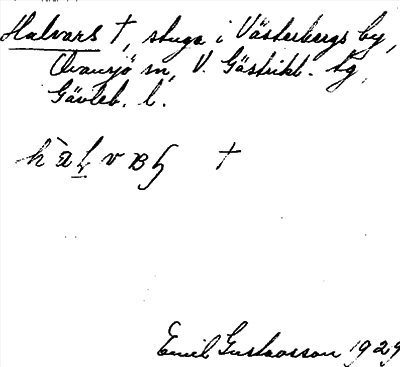 Halvars †, stuga i Västerbergs by,
Ovansjö sn, V. Gästrikl. tg
Gävleb. l.
†
Emil Gustavsson 1929